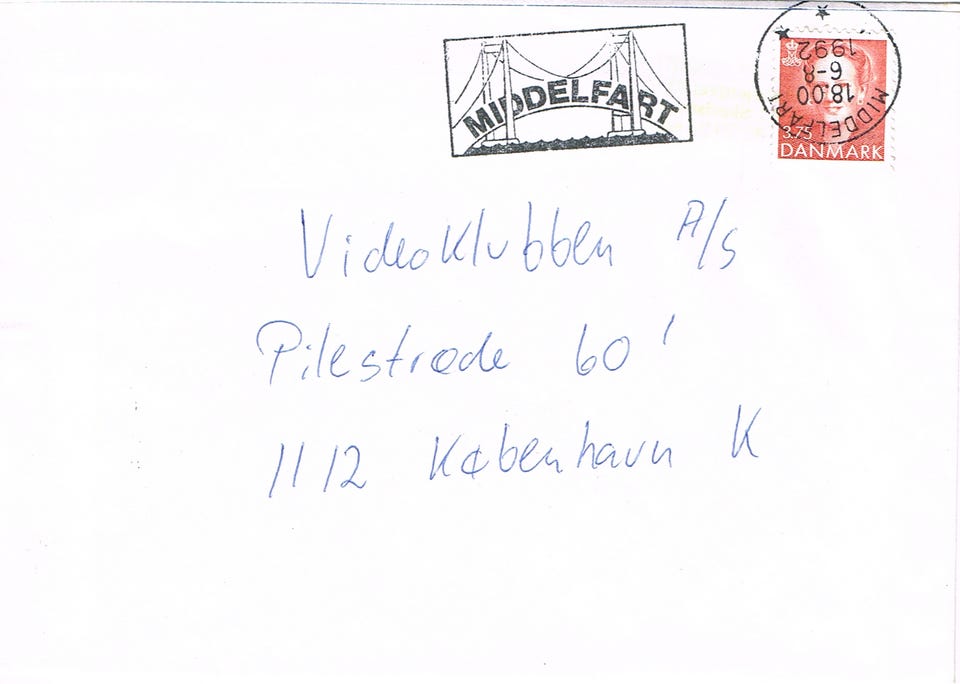 MIDDELFART
1992
6-8
18.00
MIDDELFART
3.75
DANMARK
Videoklubben A/S
Pilestræde 60'
1112 København K